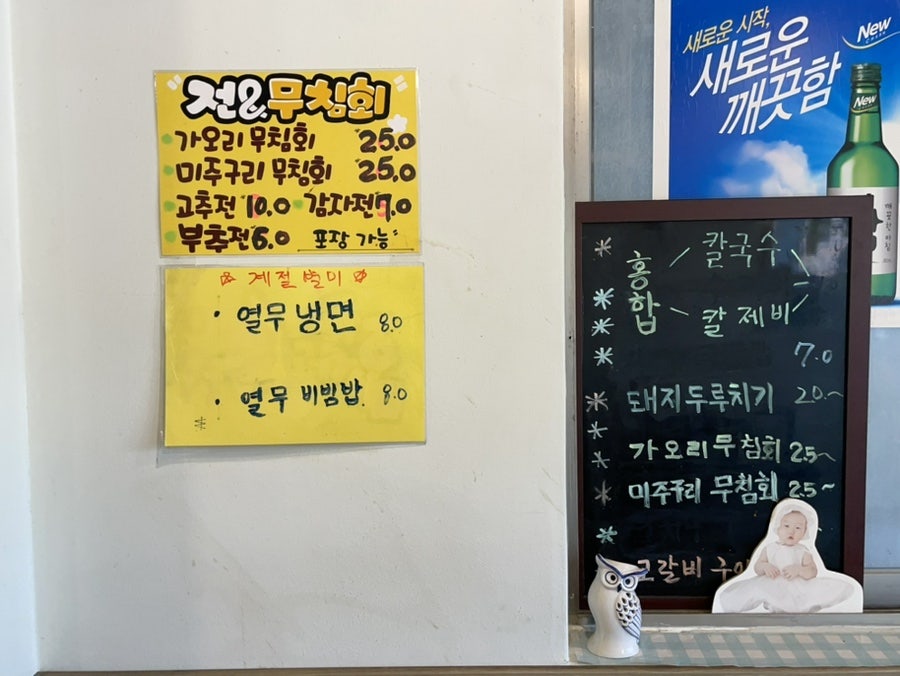 전&무침회
가오리 무침회 25.0
미주구리 무침회 25.0
고추전 10.0 감자전 7.0
부추전 6.0 포장 가능
계절별미
· 열무 냉면 8.0
· 열무 비빔밥 8.0
새로운 시작,
새로운
깨끗함
New
New
홍합 칼국수
칼제비
7.0
돼지두루치기 20~
가오리무침회 25~
미주구리 무침회 25~
갈비